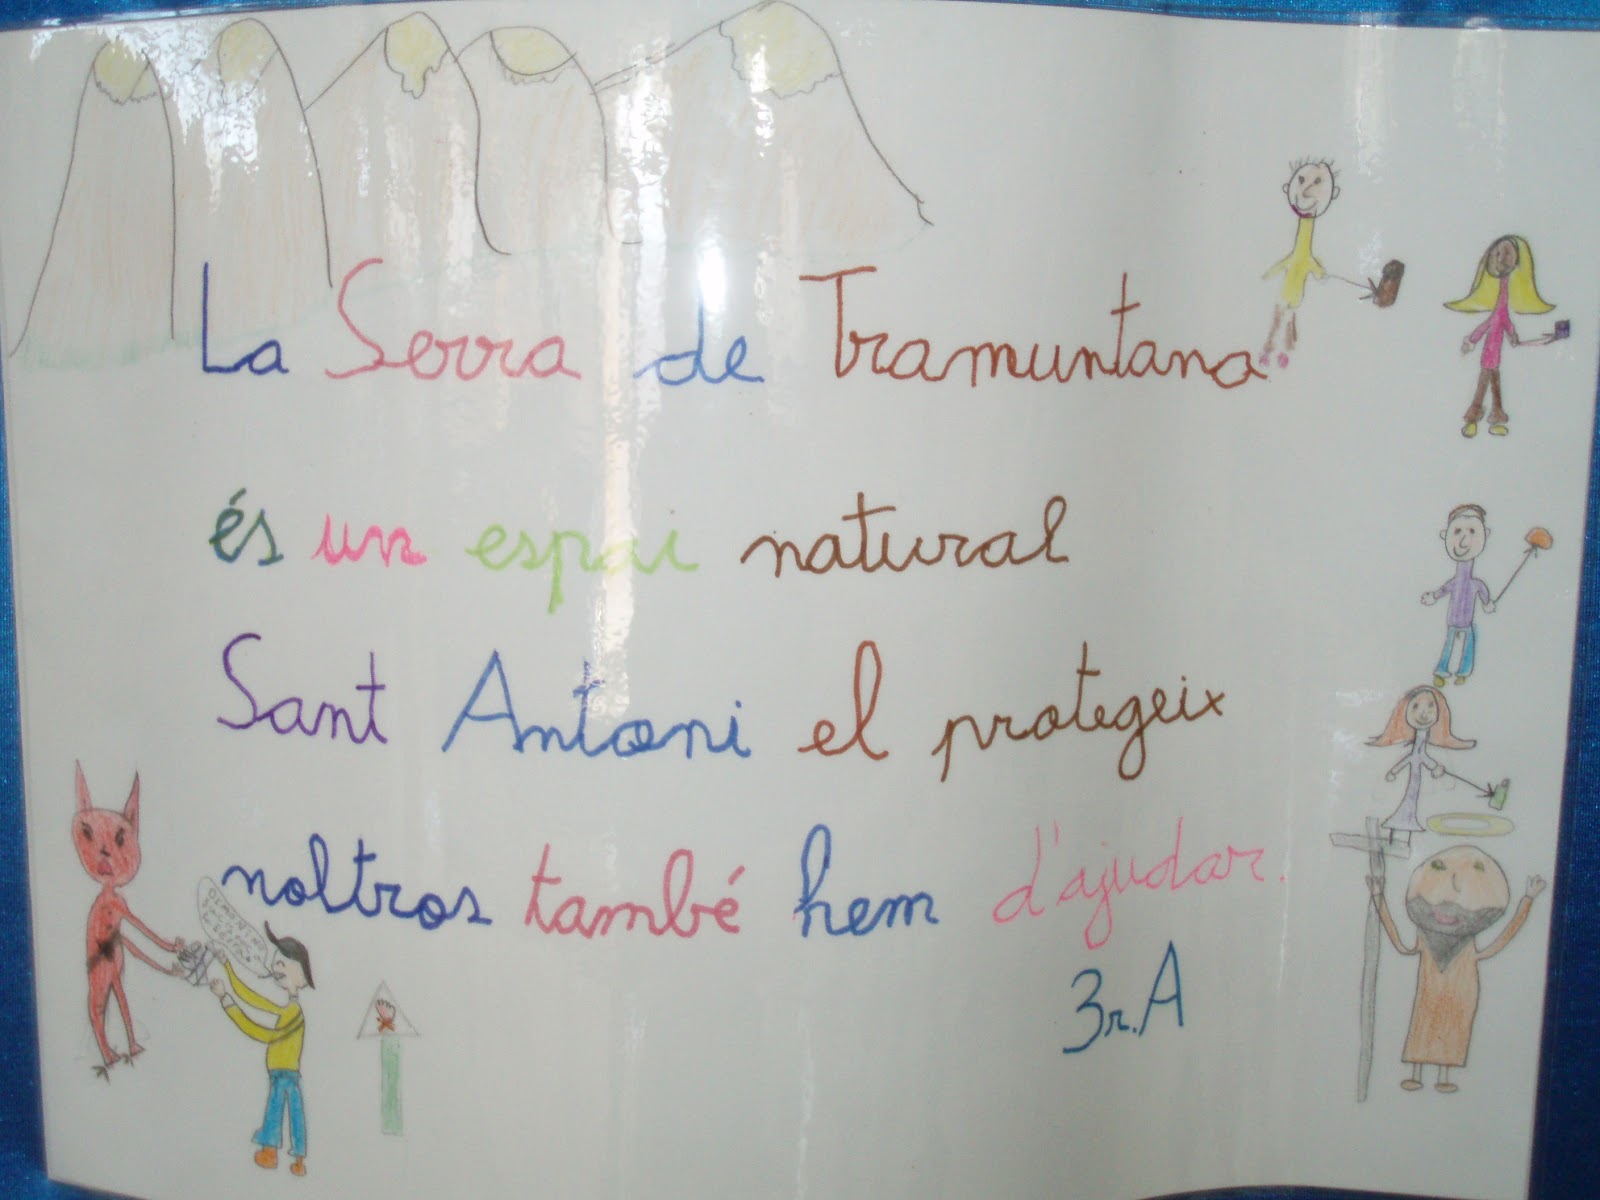 La Serra de Tramuntana
és un espai natural
Sant Antoni el protegeix
noltros també hem d'ajudar.
3r.A